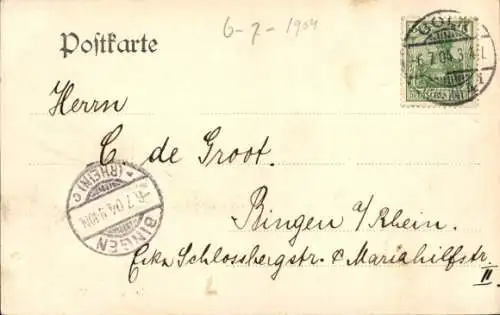 6-7-1904
Postkarte
CÖLN
6.7.04.3-4.N.
Herrn
C de Groot.
*(RHEIN) c
6.7.04.
BINGEN
Bingen a/Rhein.
Ecke Schlossbergstr. & Mariahilfstr.
II